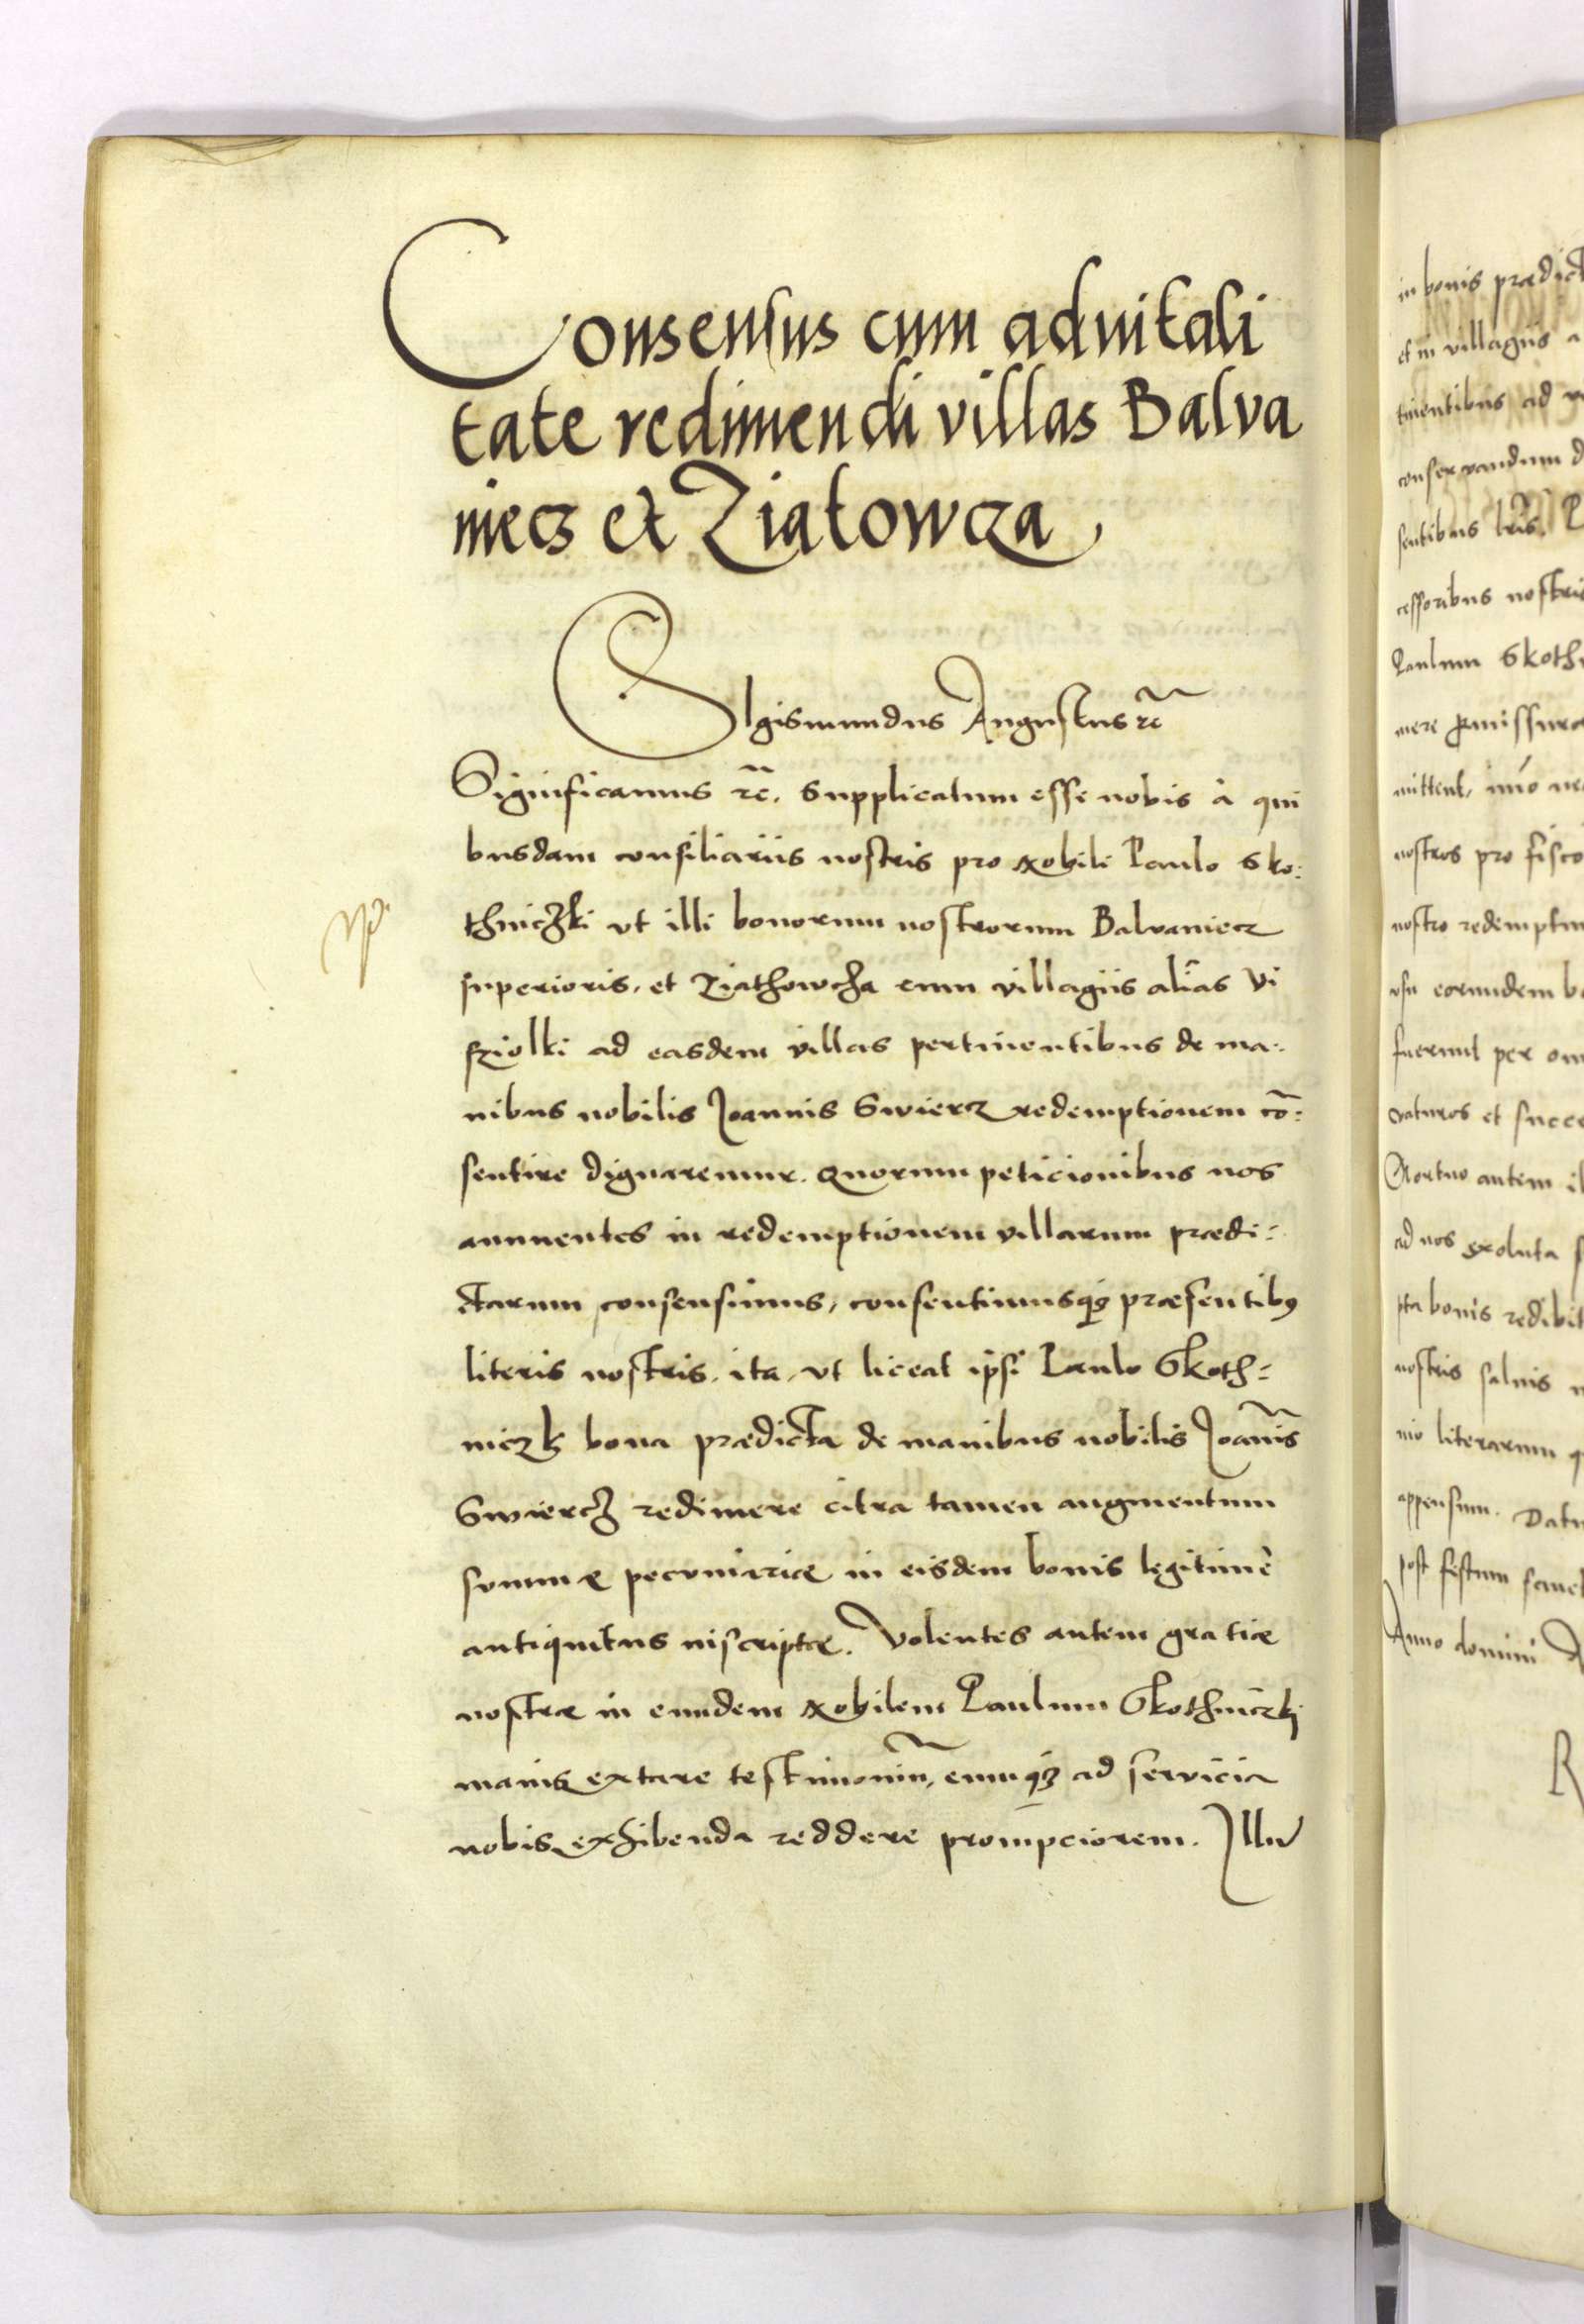 Consensus cum aduitali
tate redimendi villas Balva
niecz et Ziatowcza
SIgismundus Augustus rc̃
Significamus rc̃. Supplicatum esse nobis à qui
busdam consiliariis nostris pro Nobili Paulo Sko:
thniczki vt illi bonorum nostrorum Balvaniecz
superioris, et Ziathowcza cum villagiis alias vi
sziolki ad easdem villas pertinentibus de ma:
nibus nobilis Joannis Swiercz redemptionem cō:
sentire dignaremur. Quorum peticionibus nos
annuentes in redemptionem villarum prædi:
ctarum consensimus, consentimusq; præsentibꝰ
literis nostris, ita, vt liceat ipsi Paulo Skoth:
niczky bona prædicta de manibus nobilis Joañis
Swiercz redimere citra tamen augmentum
summæ pecuniariæ in eisdem bonis legitimè
antiquitus inscriptæ. Volentes autem gratiæ
nostræ in eundem Nobilem Paulum Skothniczky
maius extare testimoniũ, eumq; ad servicia
nobis exhibenda reddere prompciorem. Illu
in bonis prædict
et in villagiis a
tinentibus ad
conservandum d
sentibus lr̃is. P
cessoribus nostris
Paulum Skoth
mere permissuro
mittent, imo
nostros pro fisco
nostro redemptu
usu eorundem b
fuerunt per om
vaturos et succe
Mortuo autem il
ad nos exoluta
pta bonis redibit
nostris salvis
nio literarum q
appensum. Datu
post festum sanct
Anno domini
R